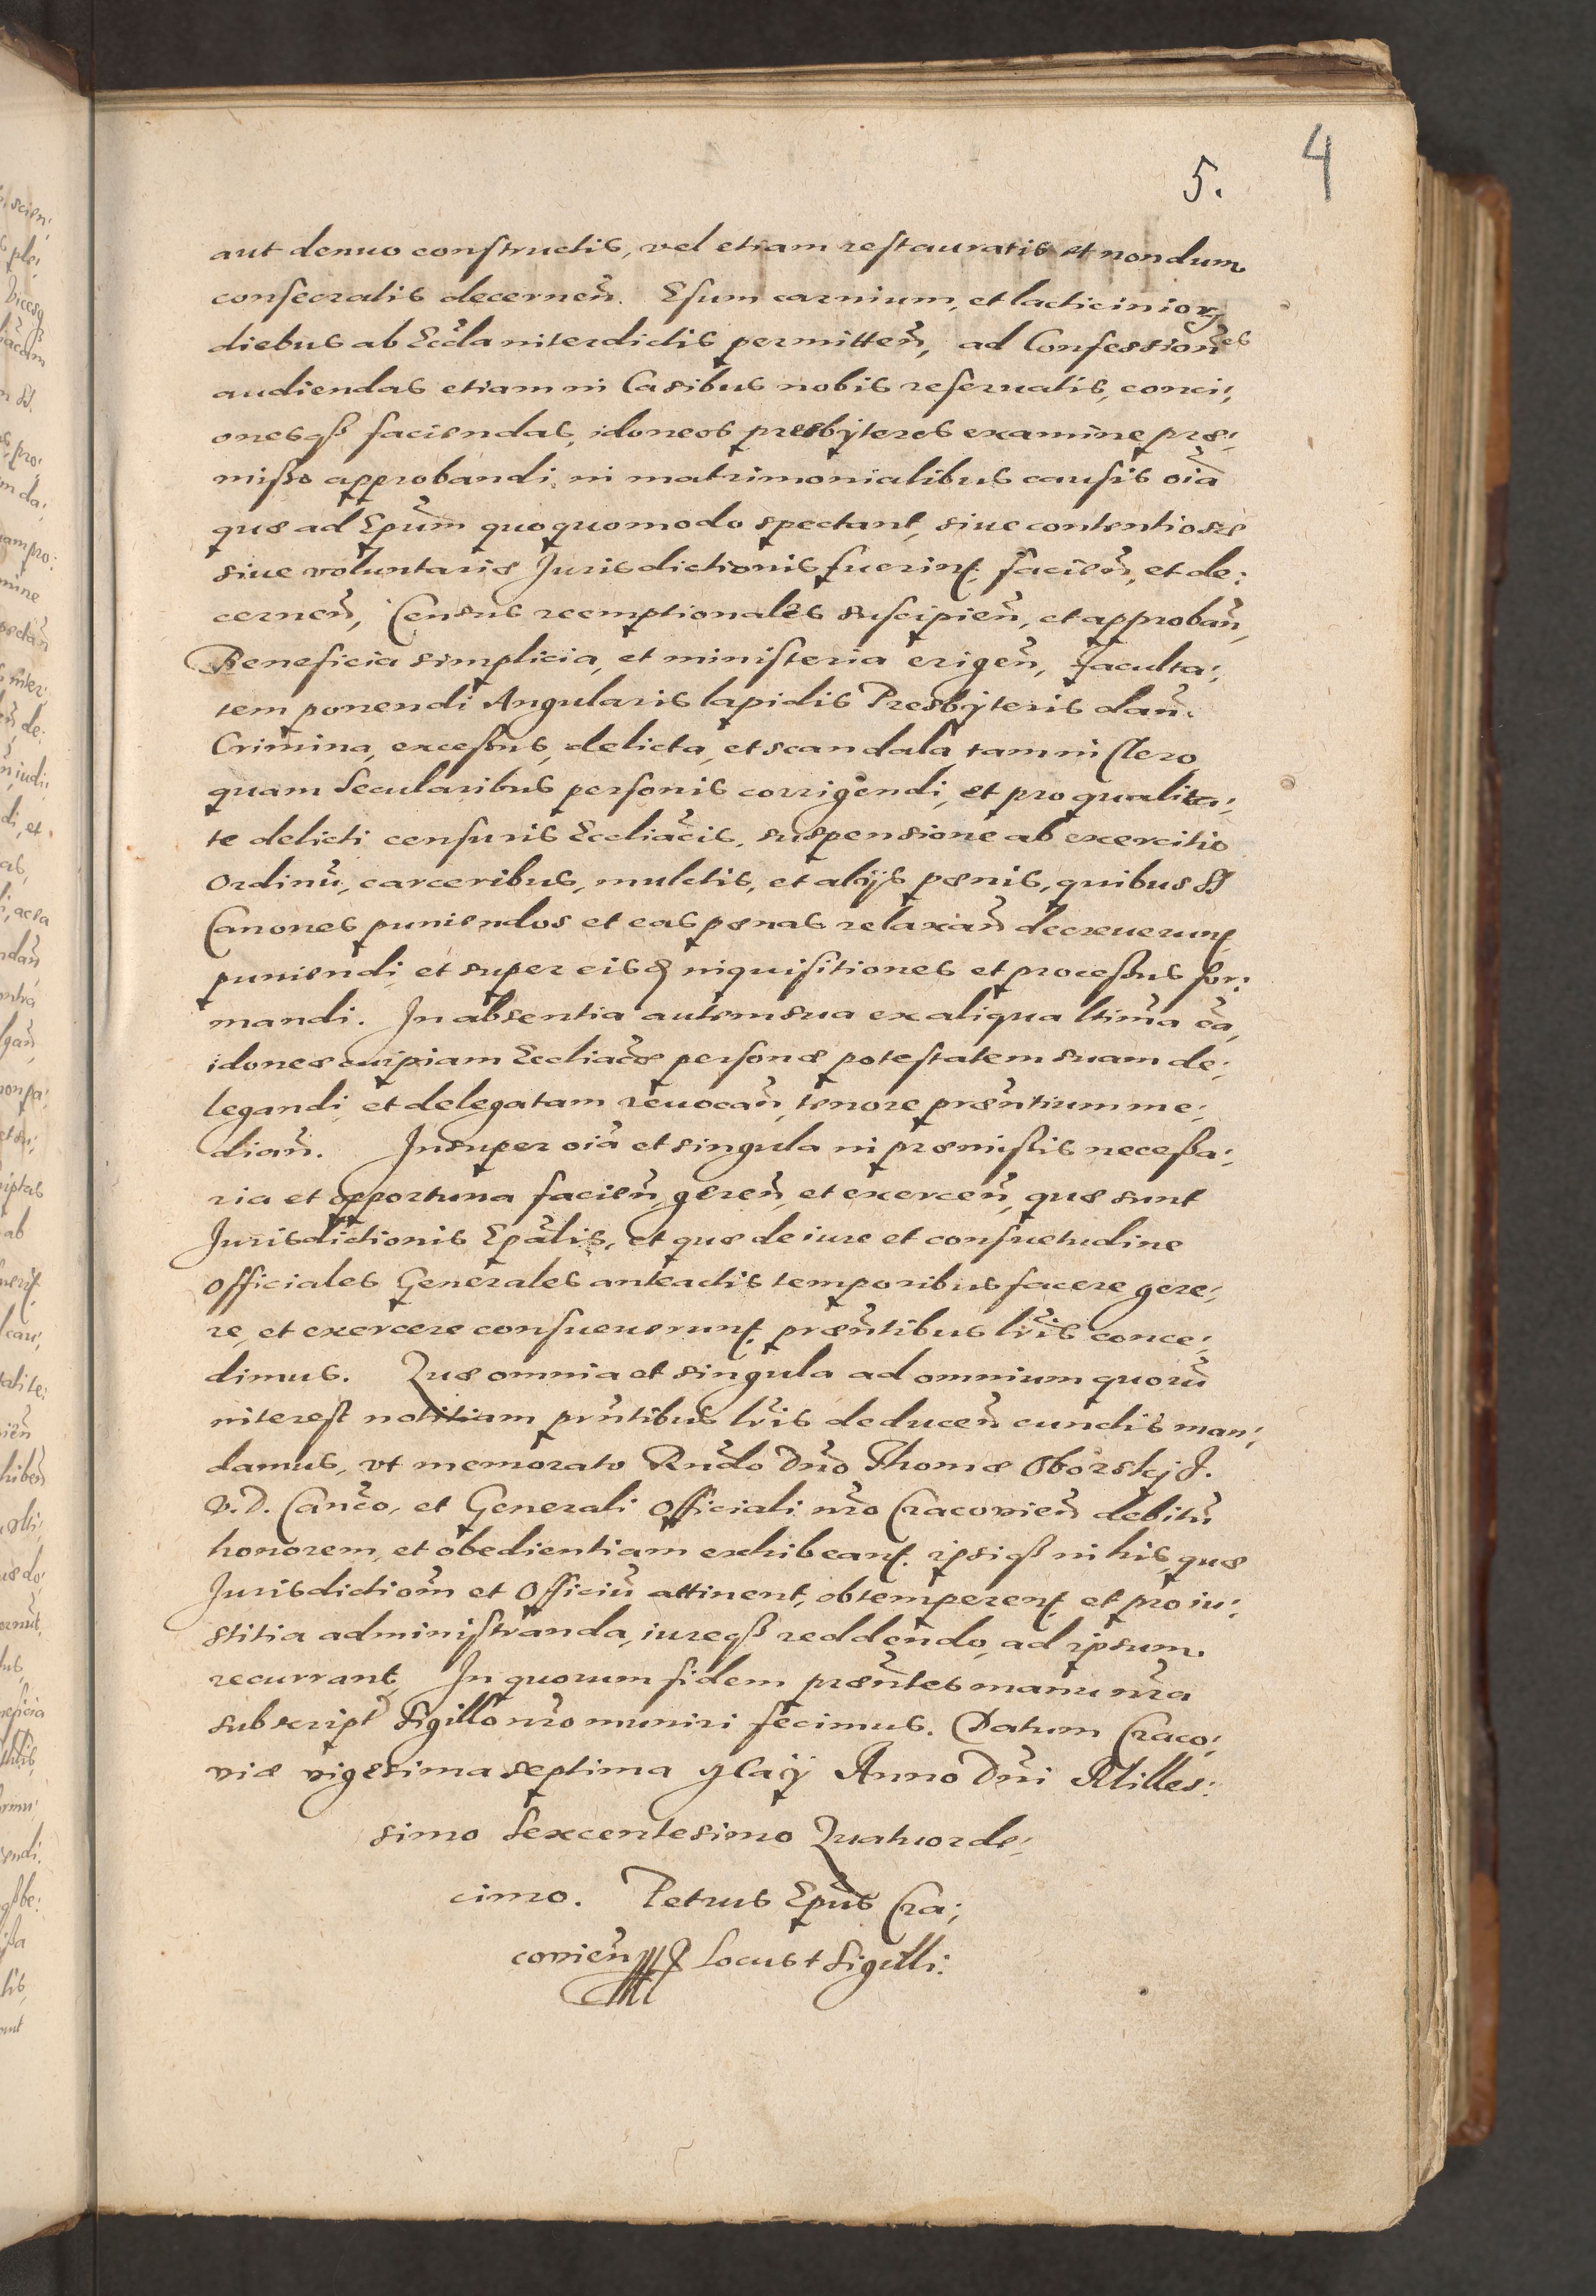 4
5.
aut denuo constructis, vel etiam restauratis et nondum
consecratis decernen̄. Esum carnium, et lacticinioꝝ
diebus ab Eccl̄a interdictis permitten̄, ad Confession̄es
audiendas etiam in Casibus nobis reseruatis, conci:
onesqꝫ faciendas, idoneos presbyteros examine præ:
misso approbandi, in matrimonialibus causis oīa
quæ ad Ep̄um quoquomodo spectant, siue contentiosæ
siue voluntariæ Jurisdictionis fuerint facien̄, et de:
cernen̄, Census reemptionales suscipien̄, et approban̄,
Beneficia simplicia, et ministeria erigen̄, faculta:
tem ponendi Angularis lapidis Presbyteris dan̄.
Crimina, excessus, delicta, et scandala, tam in Clero,
quam Secularibus personis corrigendi, et pro qualita:
te delicti censuris Eccl̄iacis, suspensione ab exercitio
Ordinū, carceribus, mulctis, et alijs pœnis, quibus SS
Canones puniendos et eas pœnas relaxan̄ decreuerunt
puniendi, et super eisd inquisitiones et processus for:
mandi. In absentia autem sua ex aliqua ltīma cā,
idoneæ cuipiam Eccl̄iacæ personæ potestatem suam de:
legandi, et delegatam reuocan̄, tenore præn̄tium me:
dian̄. Insuper oīa et singula in præmissis necessa:
ria et opportuna facien̄, geren̄, et exercen̄, quæ sunt
Jurisdictionis Ep̄alis, et quæ de iure et consuetudine
Officiales Generales anteactis temporibus facere gere:
re, et exercere consueuerunt præn̄tibus lr̄is conce:
dimus. Quæ omnia et singula ad omnium quorū
interest notitiam prn̄tibus lr̄is deducen̄ cunctis man:
damus, vt memorato Rn̄do Dn̄o Thomæ Oborskj J.
V. D. Can̄co, et Generali Officiali nr̄o Cracovien̄ debitū
honorem, et obedientiam exhibeant ipsiqꝫ in his, quæ
Jurisdictiōm et Officiū attinent, obtemperent et pro iu:
stitia administranda, iureqꝫ reddendo, ad ipsum
recurrant. In quorum fidem præn̄tes manu nr̄a
subscript Sigillo nr̄o muniri fecimus. Datum Craco:
viæ vigesima septima Maÿ Anno Dn̄i Milles:
simo Sexcentesimo Quatuorde:
cimo. Petrus Ep̄us Cra:
covien̄ Locus + Sigilli.